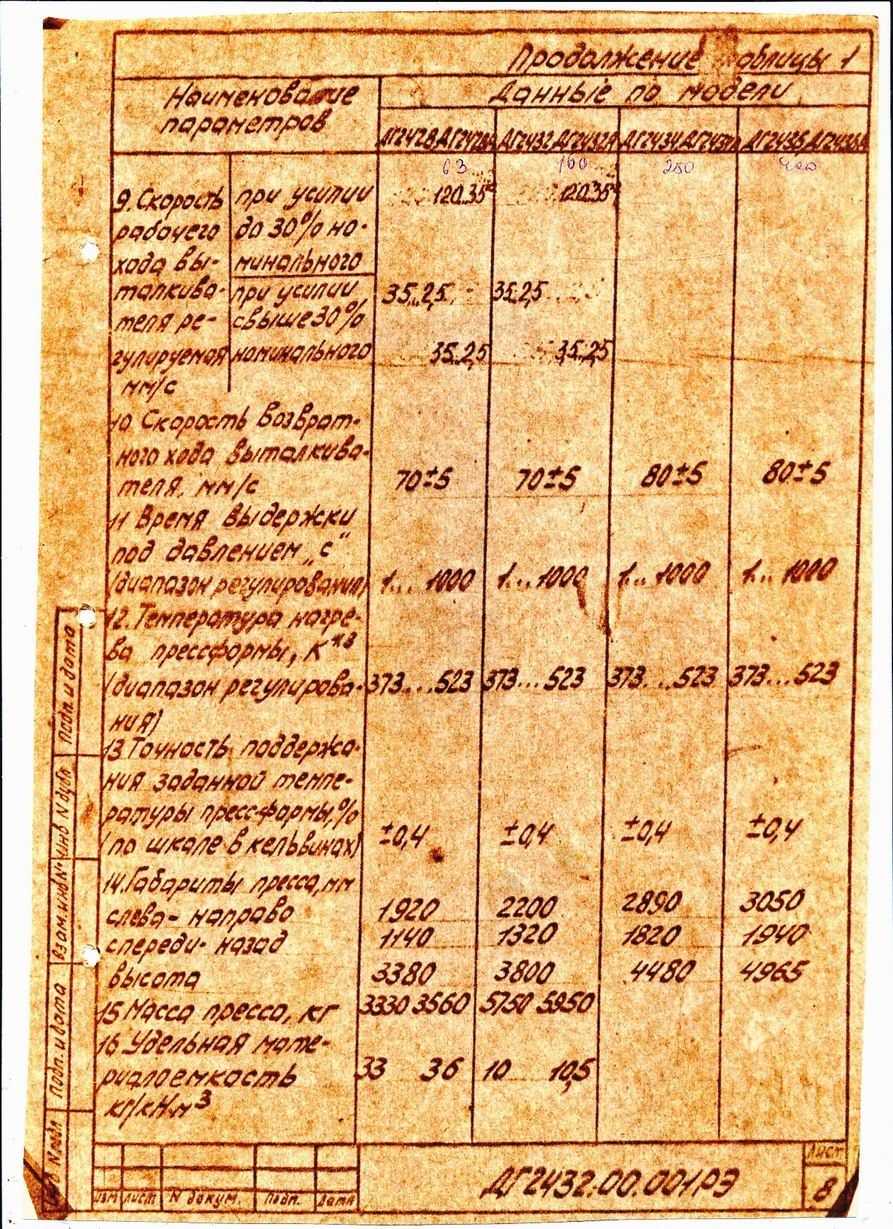 Продолжение таблицы 1
Наименование
параметров
Данные по модели
ДГ2428 ДГ2428А ДГ2432 ДГ2432А ДГ2434 ДГ2435
63 160 250 400
9. Скорость при усилии 120..35 120..35
рабочего до 30% но-
хода вы- минального
талкива- при усилии 35..2,5 35..2,5
теля ре- свыше 30%
гулируемая номинального 35..2,5 35..2,5
мм/с
10 Скорость возврат-
ного хода выталкива-
теля, мм/с 70±5 70±5 80±5 80±5
11 Время выдержки
под давлением „с“
(диапазон регулирования) 1... 1000 1... 1000 1... 1000 1... 1000
12. Температура нагре-
ва прессформы, К
(диапазон регулирова- 373...523 373...523 373...523 373...523
ния)
13 Точность поддержа-
ния заданной темпе-
ратуры прессформы, %
(по шкале в кельвинах) ±0,4 ±0,4 ±0,4 ±0,4
14. Габариты пресса, мм
слева- направо 1920 2200 2890 3050
спереди- назад 1140 1320 1820 1940
высота 3380 3800 4480 4965
15 Масса пресса, кг 3330 3560 5750 5950
16 Удельная мате-
риалоемкость 33 36 10 10,5
кг/кН.м³
Подп. и дата
Инв N дубл
Взам. инв N
Подп. и дата
N подл
Изм Лист N докум. Подп. Дата
ДГ2432.00.001РЭ
Лист
8